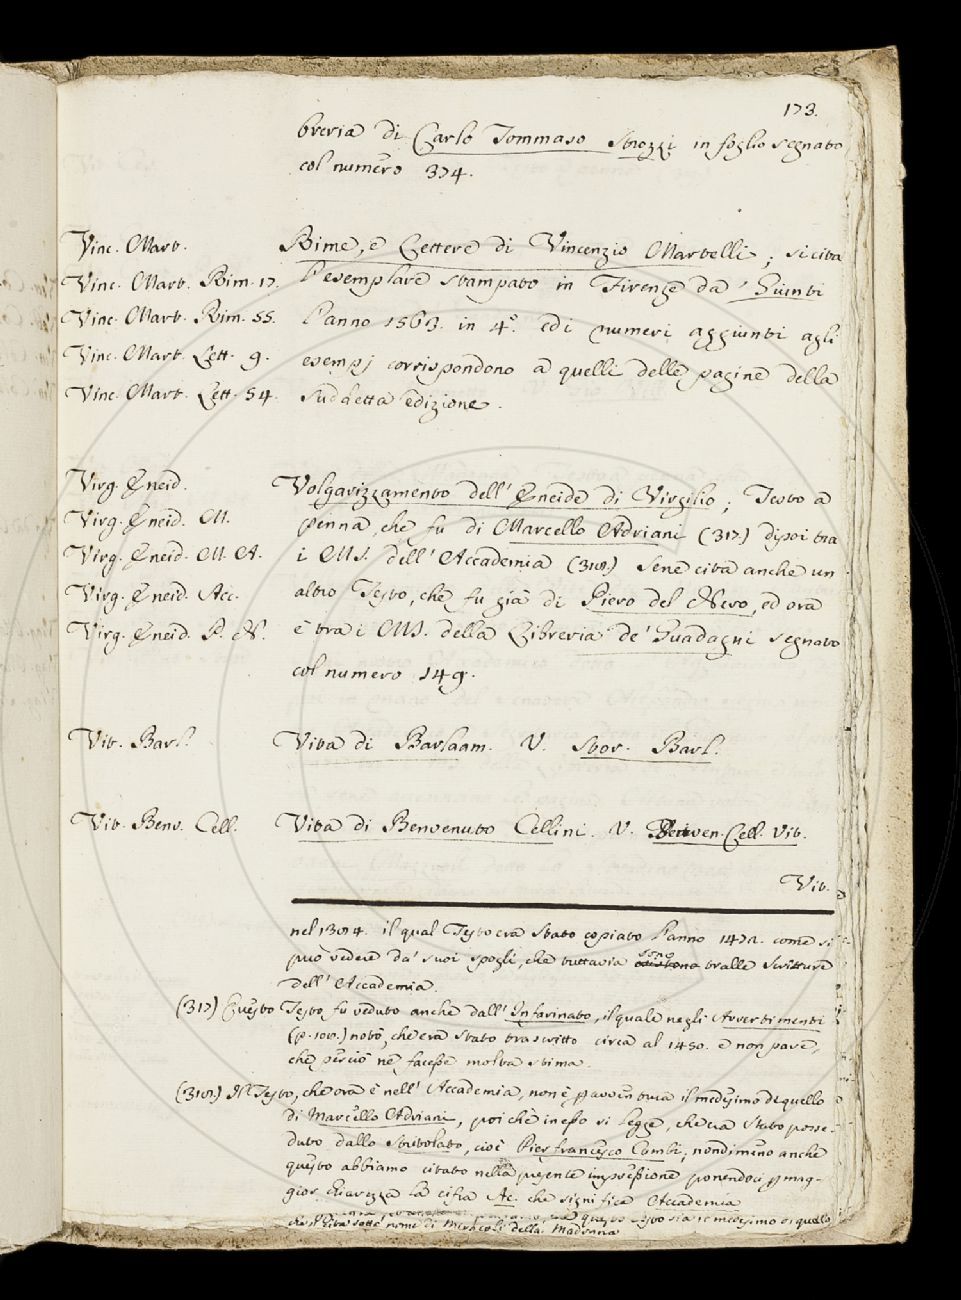 173.
breria di Carlo Tommaso Strozzi in foglio segnato
col numero 374.
Vinc. Mart.
Vinc. Mart. Rim. 17.
Vinc. Mart. Rim. 55.
Vinc. Mart. Lett. 9.
Vinc. Mart. Lett. 54.
Rime, e Lettere di Vincenzio Martelli; si cita
l'esemplare stampato in Firenze da' Giunti
l'anno 1563. in 4°. ed i numeri aggiunti agli
esempj corrispondono a quelli delle pagine della
suddetta edizione.
Virg. Eneid.
Virg. Eneid. M.
Virg. Eneid. M. A.
Virg. Eneid. Acc.
Virg. Eneid. P. N.
Volgarizzamento dell'Eneide di Virgilio; Testo a
penna, che fu di Marcello Adriani (317.) dipoi tra
i MS. dell'Accademia (318.) Sene cita anche un
altro Testo, che fu già di Piero del Nero, ed ora
è tra i MS. della Libreria de' Guadagni segnato
col numero 149.
Vit. Barl.
Vita di Barlaam. V. Stor. Barl.
Vit. Benv. Cell.
Vita di Benvenuto Cellini. V. Benven. Cell. Vit.
Vit.
nel 1394. il qual Testo era stato copiato l'anno 1472. come si
può vedere da' suoi spogli, che tuttavia sono tralle scritture
dell'Accademia.
(317) Questo Testo fu veduto anche dall'Infarinato, il quale negli Avvertimenti
(p. 108.) notò, che era stato trascritto circa al 1450. e non pare,
che perciò ne facesse molta stima.
(318.) Il Testo, che ora è nell'Accademia, non è p avventura il medesimo di quello
di Marcello Adriani, poichè in esso si legge, che era stato posse-
duto dallo Stritolato, cioè Pierfrancesco Cambi, nondimeno anche
questo abbiamo citato nella presente impressione ponendoci p mag-
gior chiarezza la cifra Ac. che significa Accademia
questo Testo sia il medesimo di quello
che si cita sotto nome di Miracoli della Madonna